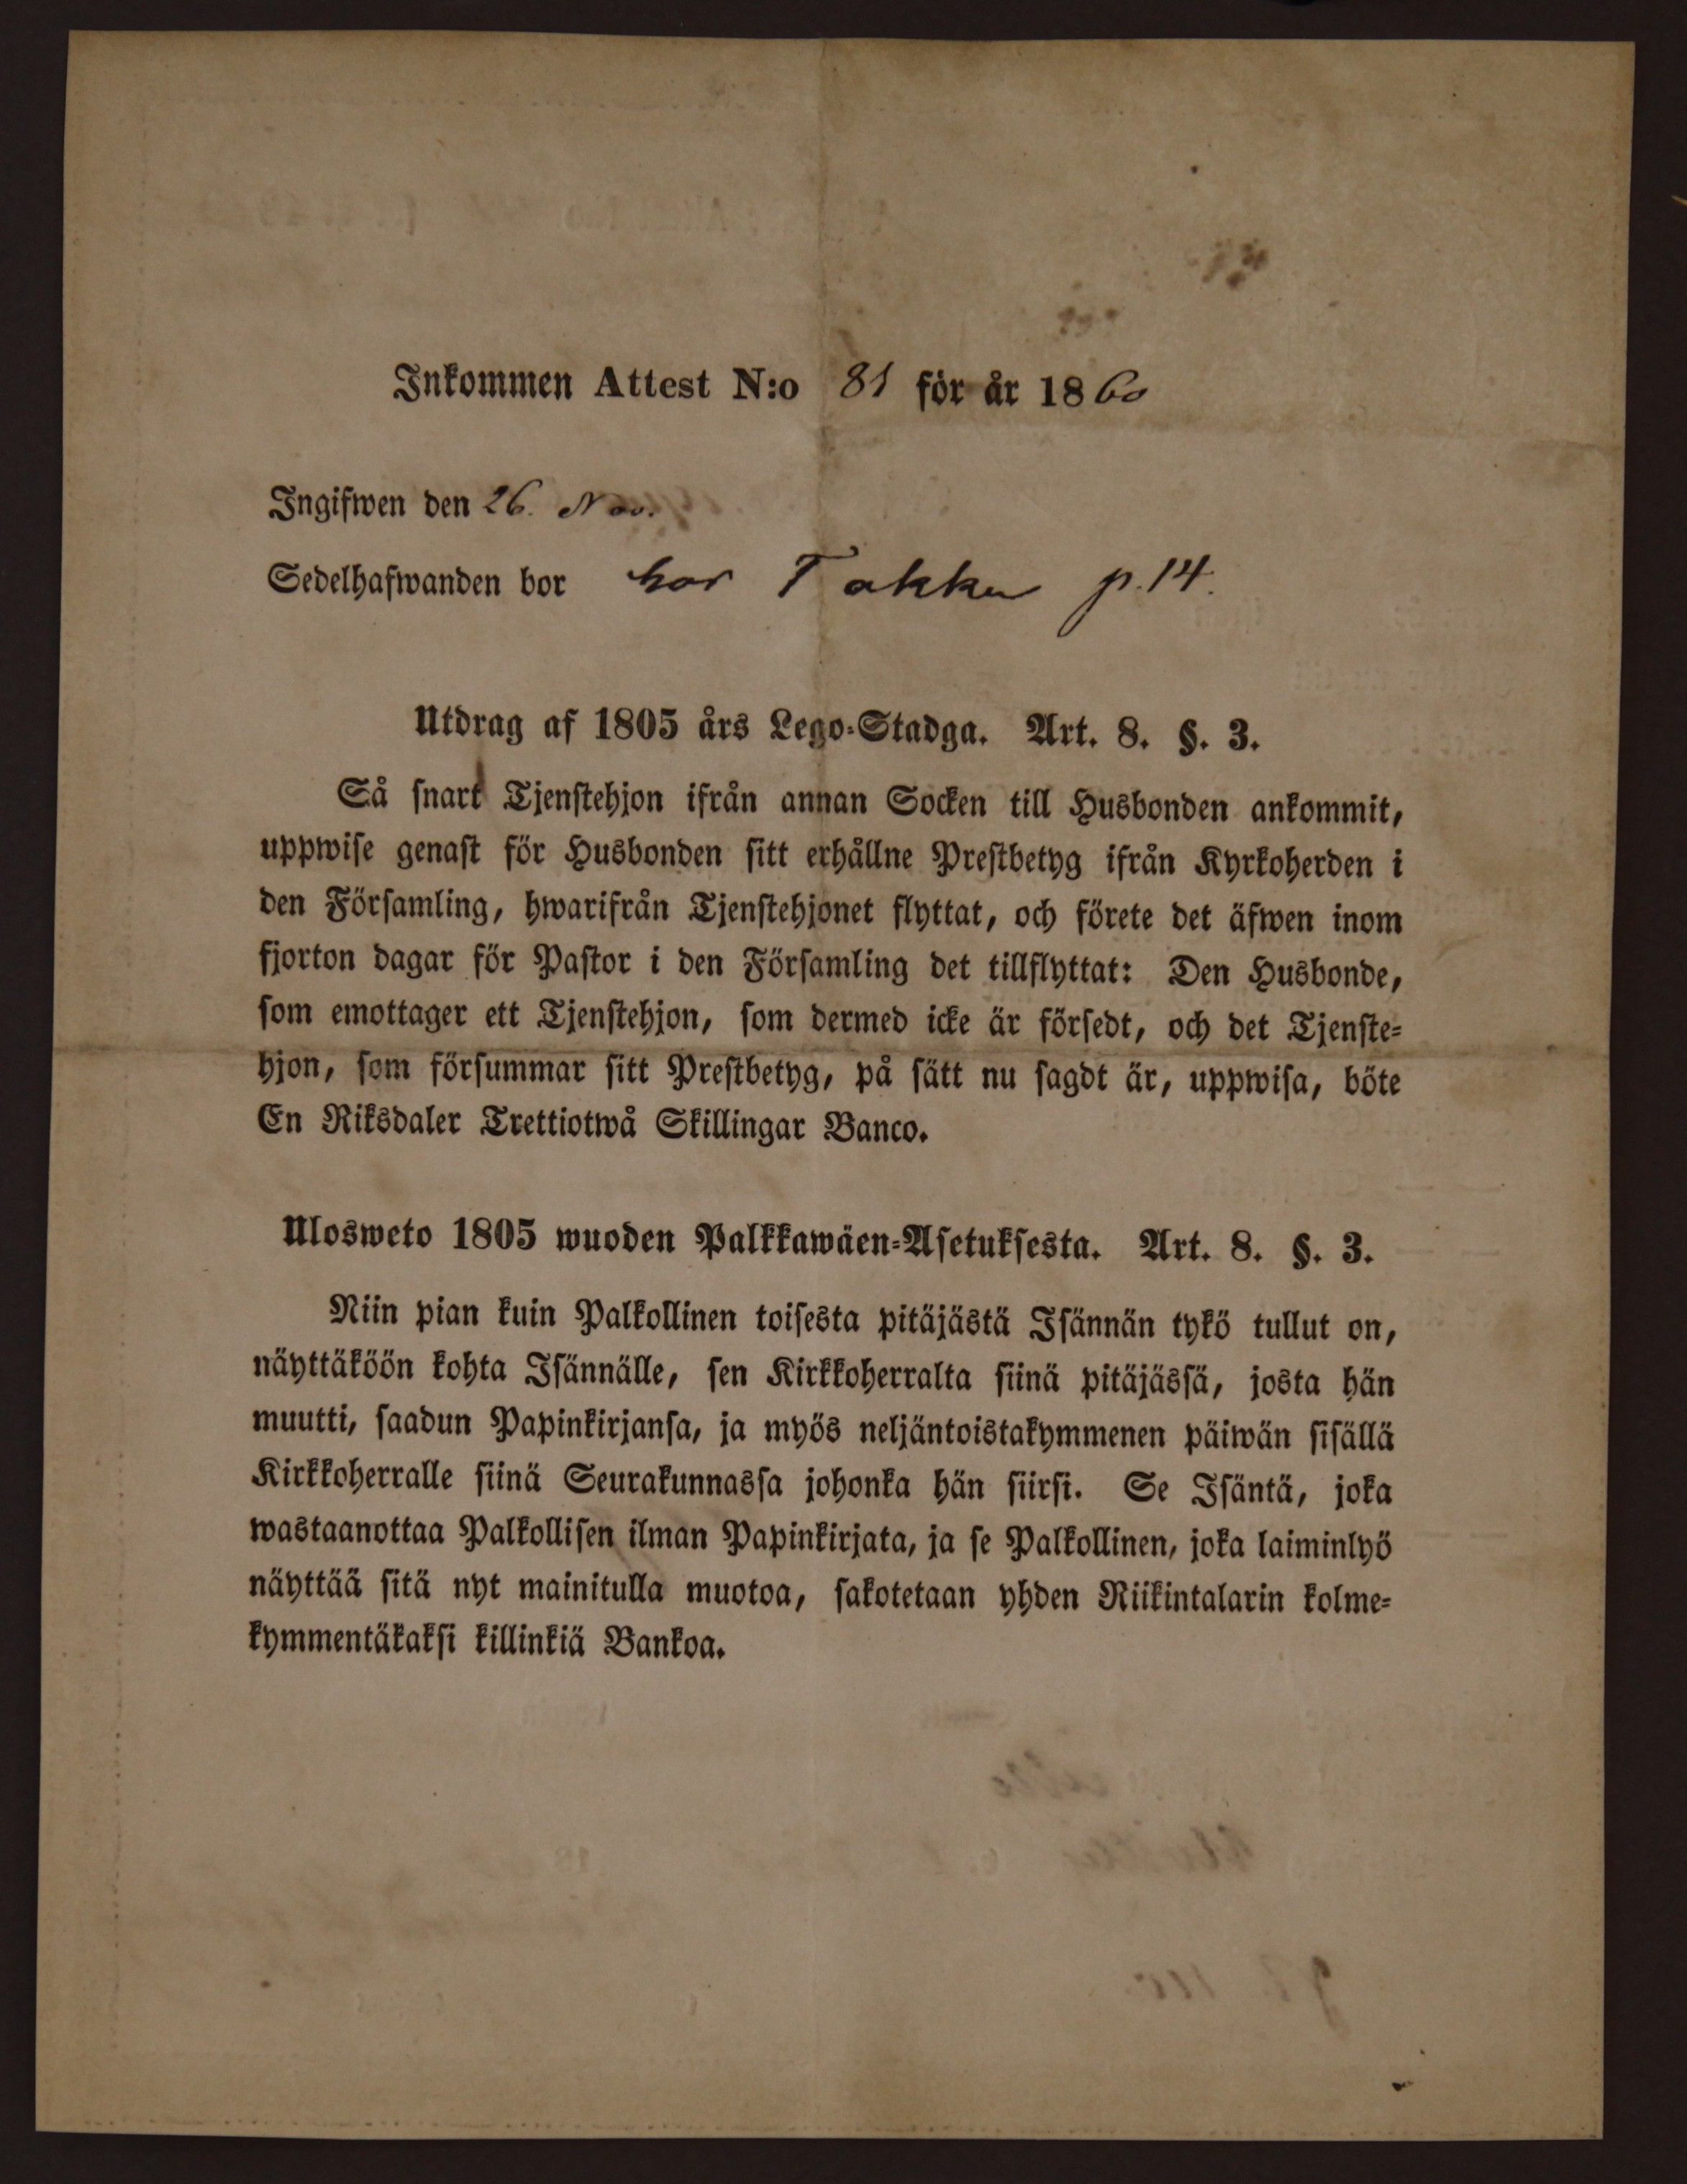 Inkommen Attest N:o 81 för år 1860
Ingifwen den 26. Nov.
Sedelhafwanden bor hos Takku p. 14.
Utdrag af 1805 års Lego-Stadga. Art. 8. §. 3.
Så snart Tjenstehjon ifrån annan Socken till Husbonden ankommit,
uppwise genast för Husbonden sitt erhållne Prestbetyg ifrån Kyrkoherden i
den Församling, hwarifrån Tjenstehjonet flyttat, och förete det äfwen inom
fjorton dagar för Pastor i den Församling det tillflyttat: Den Husbonde,
som emottager ett Tjenstehjon, som dermed icke är försedt, och det Tjenste-
hjon, som försummar sitt Prestbetyg, på sätt nu sagdt är, uppwisa, böte
En Riksdaler Trettiotwå Skillingar Banco.
Ulosweto 1805 wuoden Palkkawäen-Asetuksesta. Art. 8. §. 3.
Niin pian kuin Palkollinen toisesta pitäjästä Isännän tykö tullut on,
näyttäköön kohta Isännälle, sen Kirkkoherralta siinä pitäjässä, josta hän
muutti, saadun Papinkirjansa, ja myös neljäntoistakymmenen päiwän sisällä
Kirkkoherralle siinä Seurakunnassa johonka hän siirsi. Se Isäntä, joka
wastaanottaa Palkollisen ilman Papinkirjata, ja se Palkollinen, joka laiminlyö
näyttää sitä nyt mainitulla muotoa, sakotetaan yhden Riikintalarin kolme-
kymmentäkaksi killinkiä Bankoa.